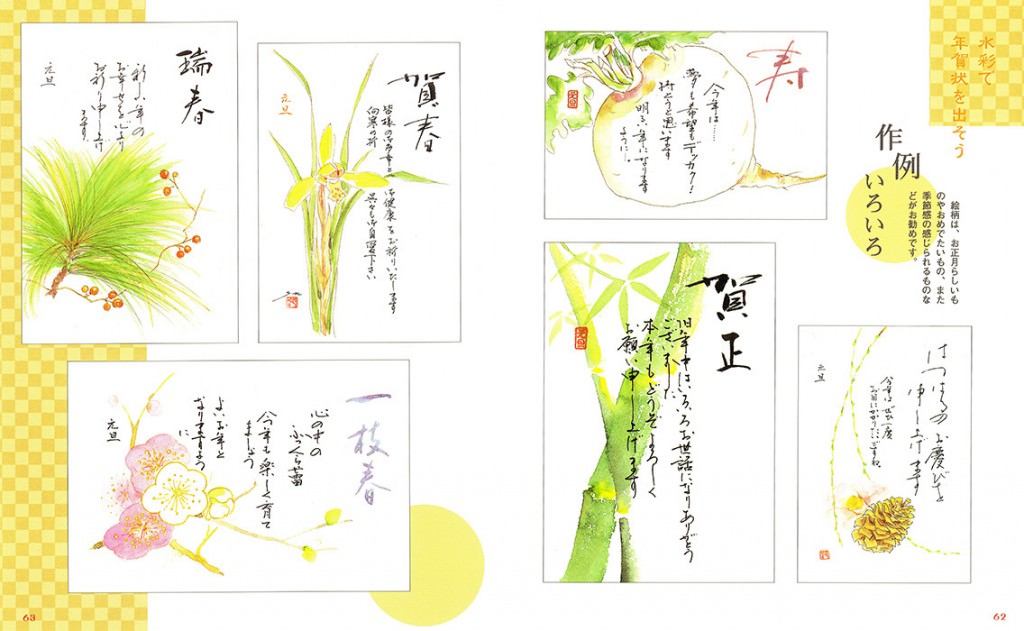 水彩で
年賀状を出そう
作例
いろいろ
絵柄は、お正月らしいも
のやおめでたいもの、また
季節感の感じられるものな
どがお勧めです。
寿
今年は……
夢も希望もデッカク！
持とうと思います
明るい年になります
ように…
賀正
旧年中はいろいろお世話になりありがとう
ございました
本年もどうぞよろしく
お願い申し上げます
はつはるのお慶びを
申し上げます
今年はぜひ一度
お目にかかりたいですね
元旦
62
賀春
皆様のご多幸とご健康をお祈りいたします
向寒の折
元旦
瑞春
新しい年の
お幸せを心より
お祈り申し上げ
ます
元旦
一枝春
心の中の
ふっくら蕾
今年も楽しく育て
ましょう
よいお年と
なりますよう
に
元旦
63